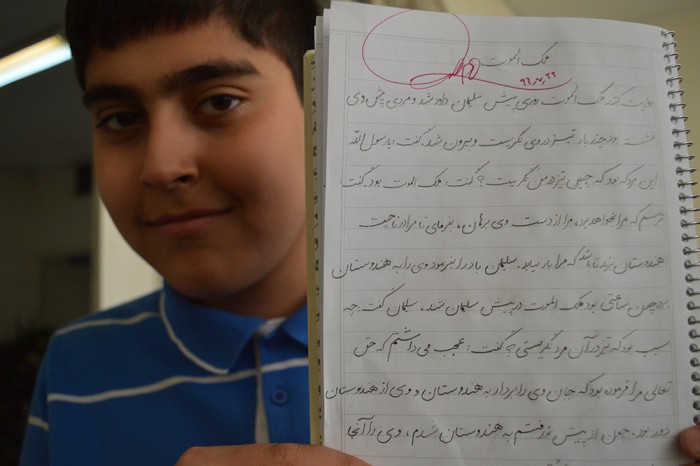 ملک الموت
۹۶,۷,۲۲
روایت کنند ملک الموت روزی پیش سلیمان داود شد و مردی پیش وی
نشسته بود چند بار تیز در وی نگریست و بیرون شد. گفت: یا رسول الله
این مرد که بود که چنین تیز در من نگریست؟ گفت: ملک الموت بود. گفت
ترسم که مرا بخواهد برد، مرا از دست وی برهان، بفرمای تا مرا در ناحیت
هندوستان برند تا باشد که مرا باز نیابد. سلیمان باد را بفرمود وی را به هندوستان
برد چون ساعتی بود ملک الموت در پیش سلیمان شد. سلیمان گفت: چه
سبب بود که تیز در آن مرد نگریستی؟ گفت: عجب می داشتم که حق
تعالی مرا فرموده بود که جان وی را بردار به هندوستان و وی از هندوستان
دور بود. چون از پیش تو رفتم به هندوستان شدم، وی را آنجا